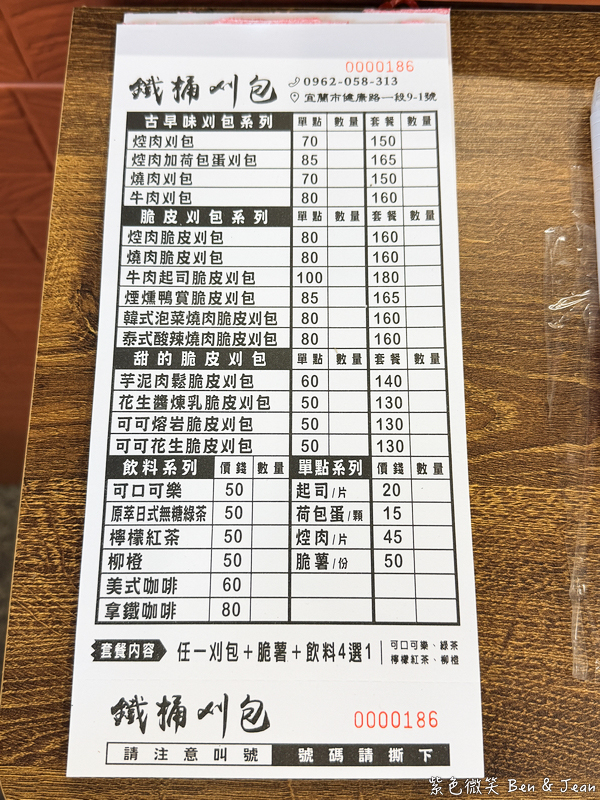 0000186
鐵桶刈包 0962-058-313
宜蘭市健康路一段9-1號
古早味刈包系列 單點 數量 套餐 數量
焢肉刈包 70 150
焢肉加荷包蛋刈包 85 165
燒肉刈包 70 150
牛肉刈包 80 160
脆皮刈包系列 單點 數量 套餐 數量
焢肉脆皮刈包 80 160
燒肉脆皮刈包 80 160
牛肉起司脆皮刈包 100 180
煙燻鴨賞脆皮刈包 85 165
韓式泡菜燒肉脆皮刈包 80 160
泰式酸辣燒肉脆皮刈包 80 160
甜的脆皮刈包 單點 數量 套餐 數量
芋泥肉鬆脆皮刈包 60 140
花生醬煉乳脆皮刈包 50 130
可可熔岩脆皮刈包 50 130
可可花生脆皮刈包 50 130
飲料系列 價錢 數量 單點系列 價錢 數量
可口可樂 50 起司/片 20
原萃日式無糖綠茶 50 荷包蛋/顆 15
檸檬紅茶 50 焢肉/片 45
柳橙 50 脆薯/份 50
美式咖啡 60
拿鐵咖啡 80
套餐內容 任一刈包+脆薯+飲料4選1 可口可樂、綠茶
檸檬紅茶、柳橙
鐵桶刈包 0000186
請注意叫號 號碼請撕下
紫色微笑 Ben & Jean